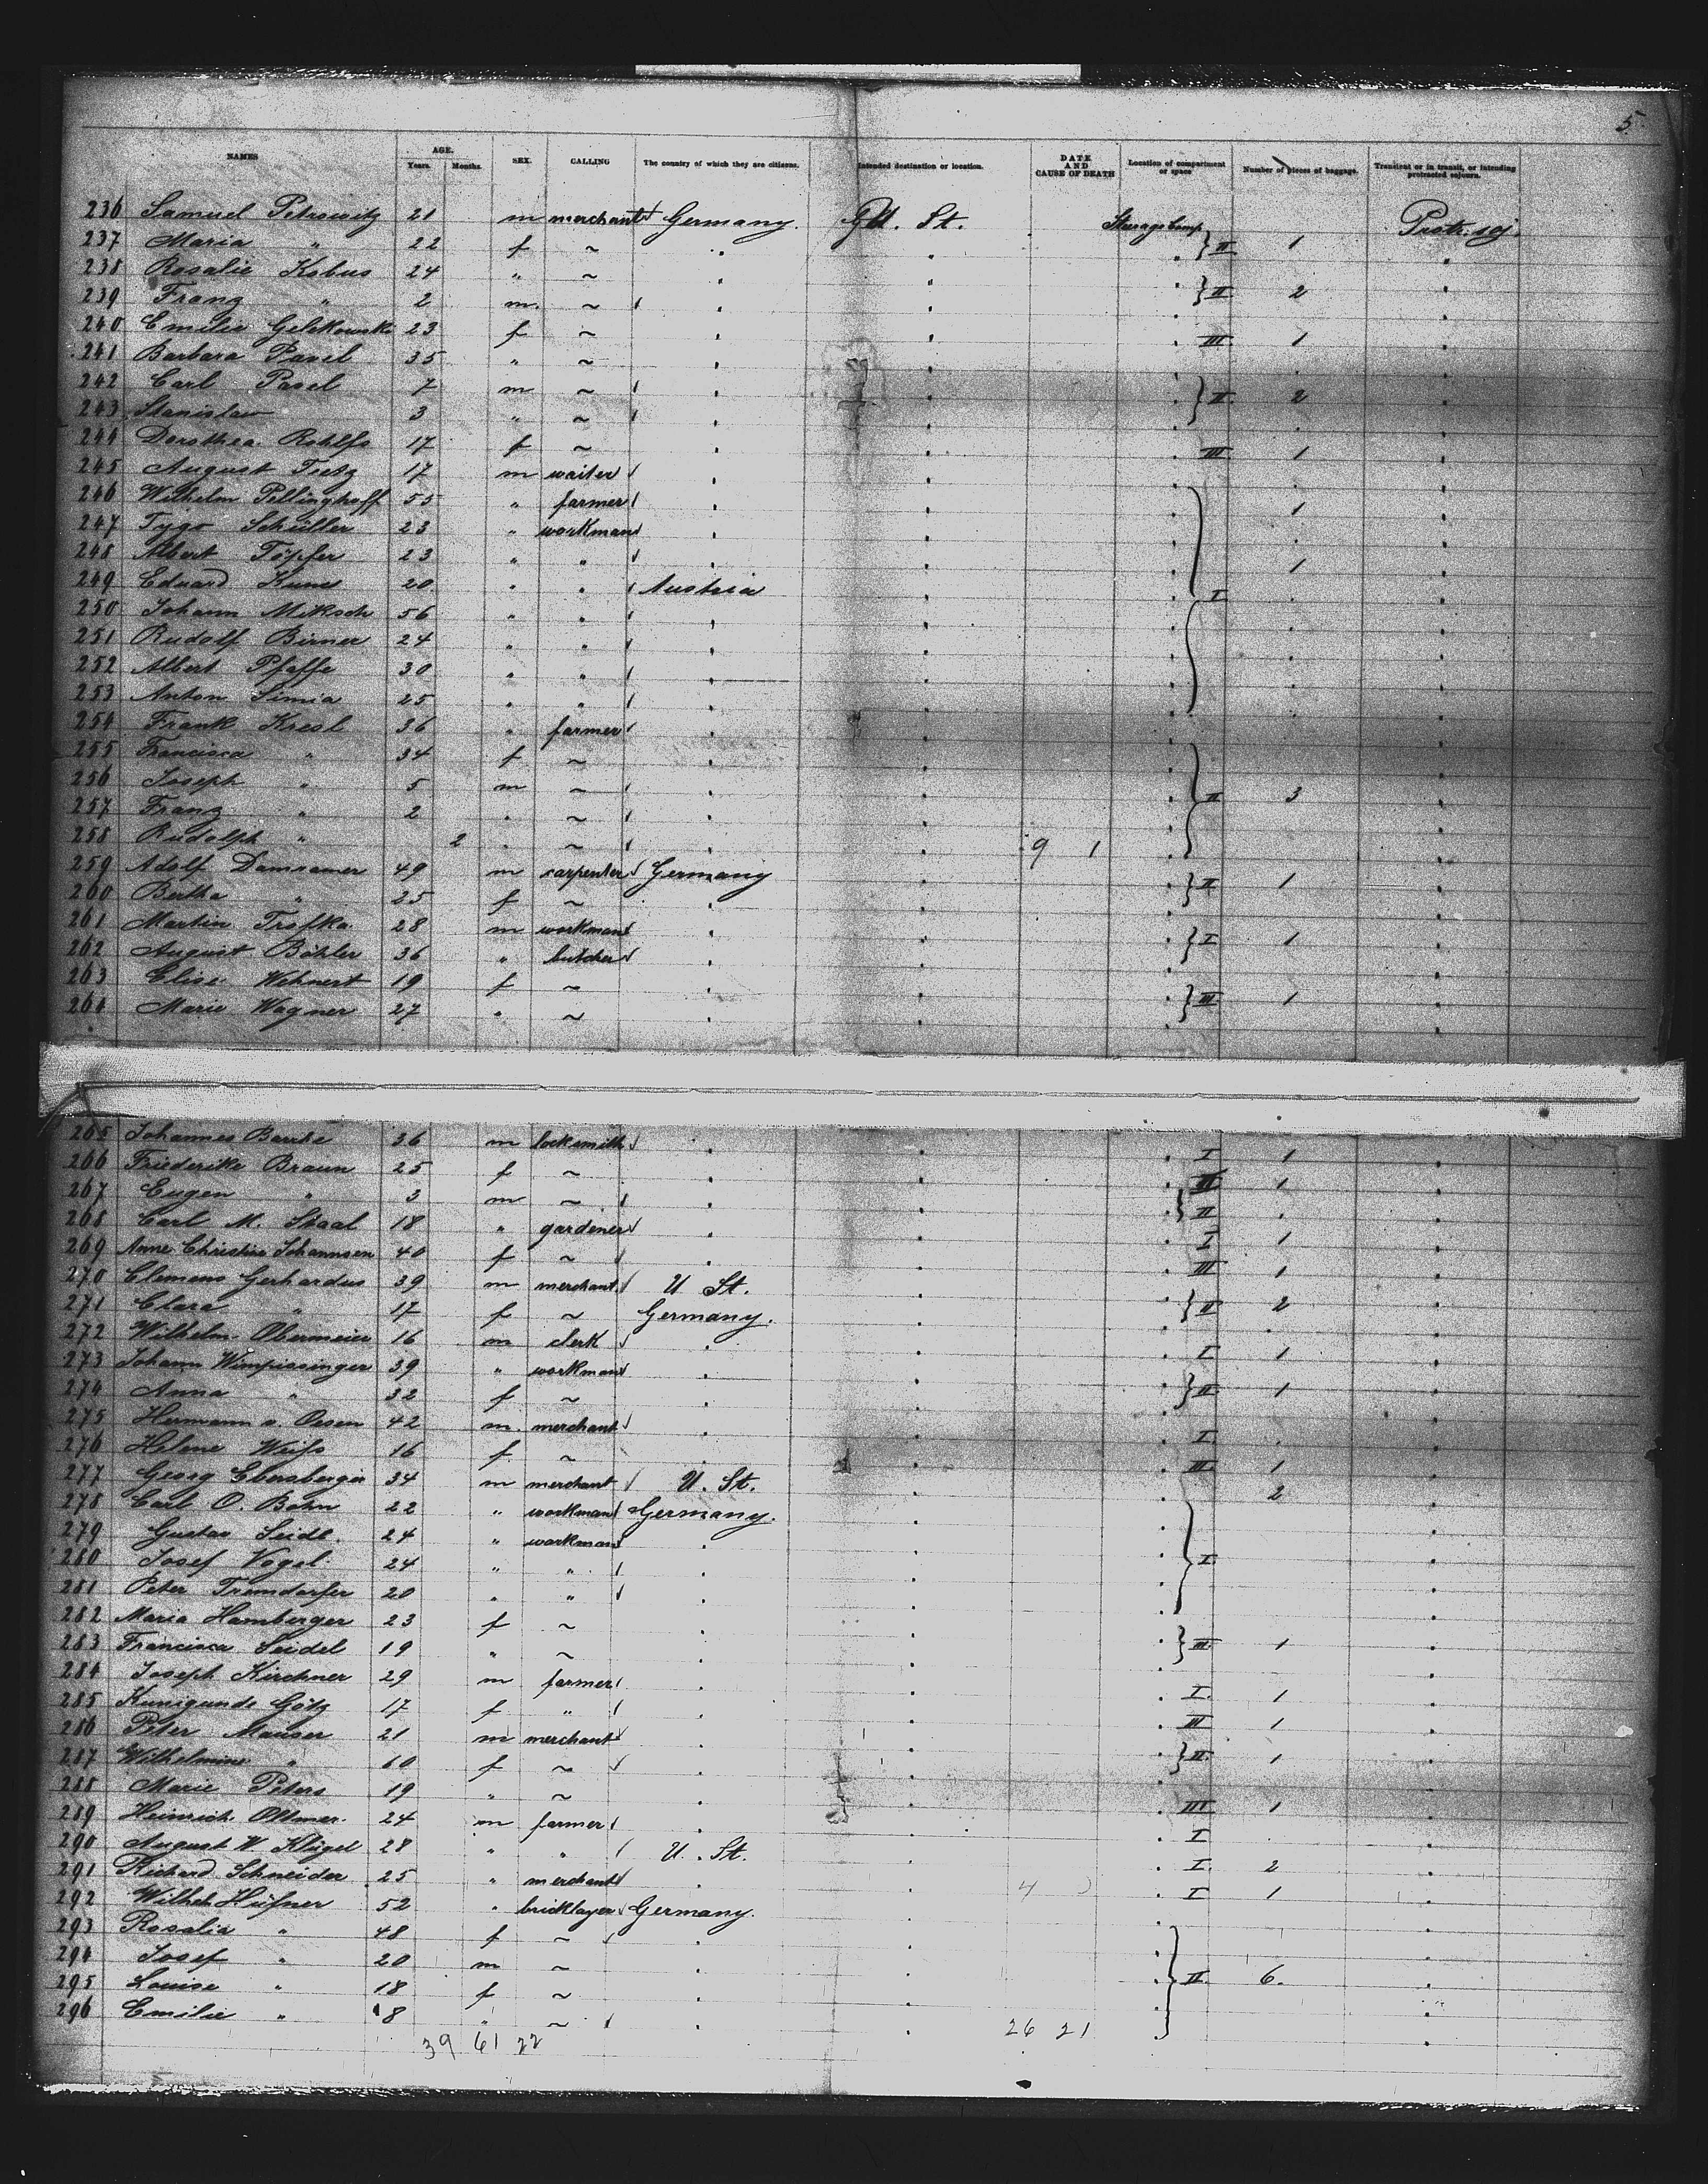 5.
NAMES AGE. Years. Months. SEX. CALLING The country of which they are citizens. Intended destination or location. DATE AND CAUSE OF DEATH Location of compartment or space Number of pieces of baggage. Transient or in transit, or intending protracted sojourn.
236 Samuel Petrowitz 21 m merchant Germany. U. St. Steerage Comp. Protr. soj.
237 Maria " 22 f ~ " } II 1
238 Rosalie Kobus 24 " ~ "
239 Franz " 2 m. ~ " } II 2
240 Emilie 23 f ~ " III 1
241 Barbara Pavel 35 " ~ "
242 Carl Pavel 7 m ~ " } II 2
243 Stanislaw 3 " ~ "
244 Dorothea Rohlfs 17 f ~ " III 1
245 August Tietz 17 m waiter "
246 Wilhelm Pellinghoff 55 " farmer " 1
247 Tygo Schüller 23 " workman "
248 Albert Töpfer 23 " " " 1
249 Eduard Kunes 20 " " Austria I
250 Johann Miksch 56 " " "
251 Rudolf Birner 24 " " "
252 Albert Pfaffe 30 " " "
253 Anton Simia 25 " " "
254 Frank Kresl 36 " farmer "
255 Francisca " 34 f ~ "
256 Joseph " 5 m ~ " } II 3
257 Franz " 2 " ~ "
258 Rudolph " 2 " ~ " 9 1
259 Adolf Damramer 49 m carpenter Germany } II 1
260 Bertha " 25 f ~ "
261 Martin Trofka 28 m workman " } I 1
262 August Böhler 36 " butcher "
263 Elise Wehnert 19 f ~ " } III 1
264 Marie Wagner 27 " ~ "
265 Johannes 36 m locksmith " I 1
266 Friederike Braun 25 f ~ " 1
267 Eugen " 3 m ~ " } II
268 Carl M. Staal 18 " gardener " I 1
269 Anne Christine Johannsen 40 f ~ " III 1
270 Clemens Gerhardus 39 m merchant U St. } II 2
271 Clara " 17 f ~ Germany.
272 Wilhelm Obermeier 16 m clerk " I 1
273 Johann Wimpissinger 39 " workman " } II 1
274 Anna " 32 f ~ "
275 Hermann v. Oesen 42 m. merchant " I.
276 Helene Weiss 16 f ~ " III 1
277 Georg Ebersberger 34 m merchant U. St. 2
278 Carl O. Bohn 22 " workman Germany.
279 Gustav Seidl. 24 " workman " } I
280 Josef Vogel. 24 " " "
281 Peter Trumdorfer 20 " " "
282 Maria Hamberger 23 f ~ " } III 1
283 Francisca Seidel 19 " ~ "
284 Joseph Kirchner 29 m farmer " I. 1
285 Kunigunde Götz 17 f " " III 1
286 Peter Mauser 21 m merchant " } II 1
287 Wilhelmine " 60 f ~ "
288 Marie Peters 19 " ~ " III 1
289 Heinrich Ottmer. 24 m farmer " I
290 August W. Klügel 28 " " U. St. I. 2
291 Richard Schneider 25 " merchant " 4 I 1
292 Wilhelm Hüfner 52 " bricklayer Germany.
293 Rosalia " 48 f ~ "
294 Josef " 20 m ~ " } II. 6.
295 Louise " 18 f ~ "
296 Emilie " 8 " ~ " 26 21
39 61 22